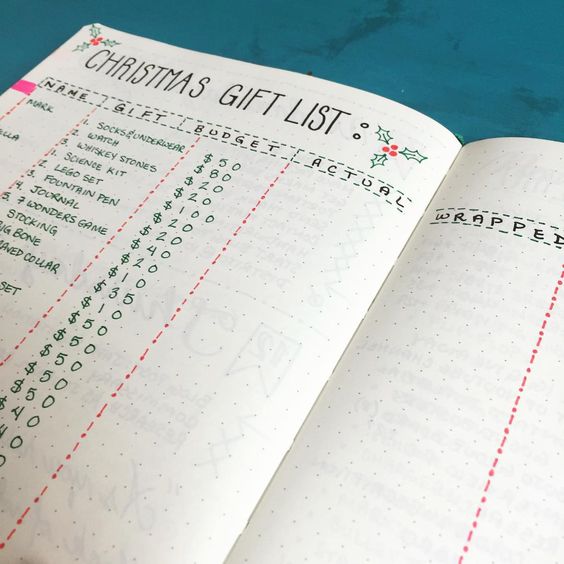 CHRISTMAS GIFT LIST:
NAME GIFT BUDGET ACTUAL
WRAPPED
MARK
SOCKS & UNDERWEAR $50
2. WATCH $80
3. WHISKEY STONES $20
1. SCIENCE KIT $20
2. LEGO SET $100
3. FOUNTAIN PEN $20
4. JOURNAL $40
5. 7 WONDERS GAME $20
STOCKING $10
BONE $35
COLLAR $10
SET $50
$50
$50
$50
$50
$40
40